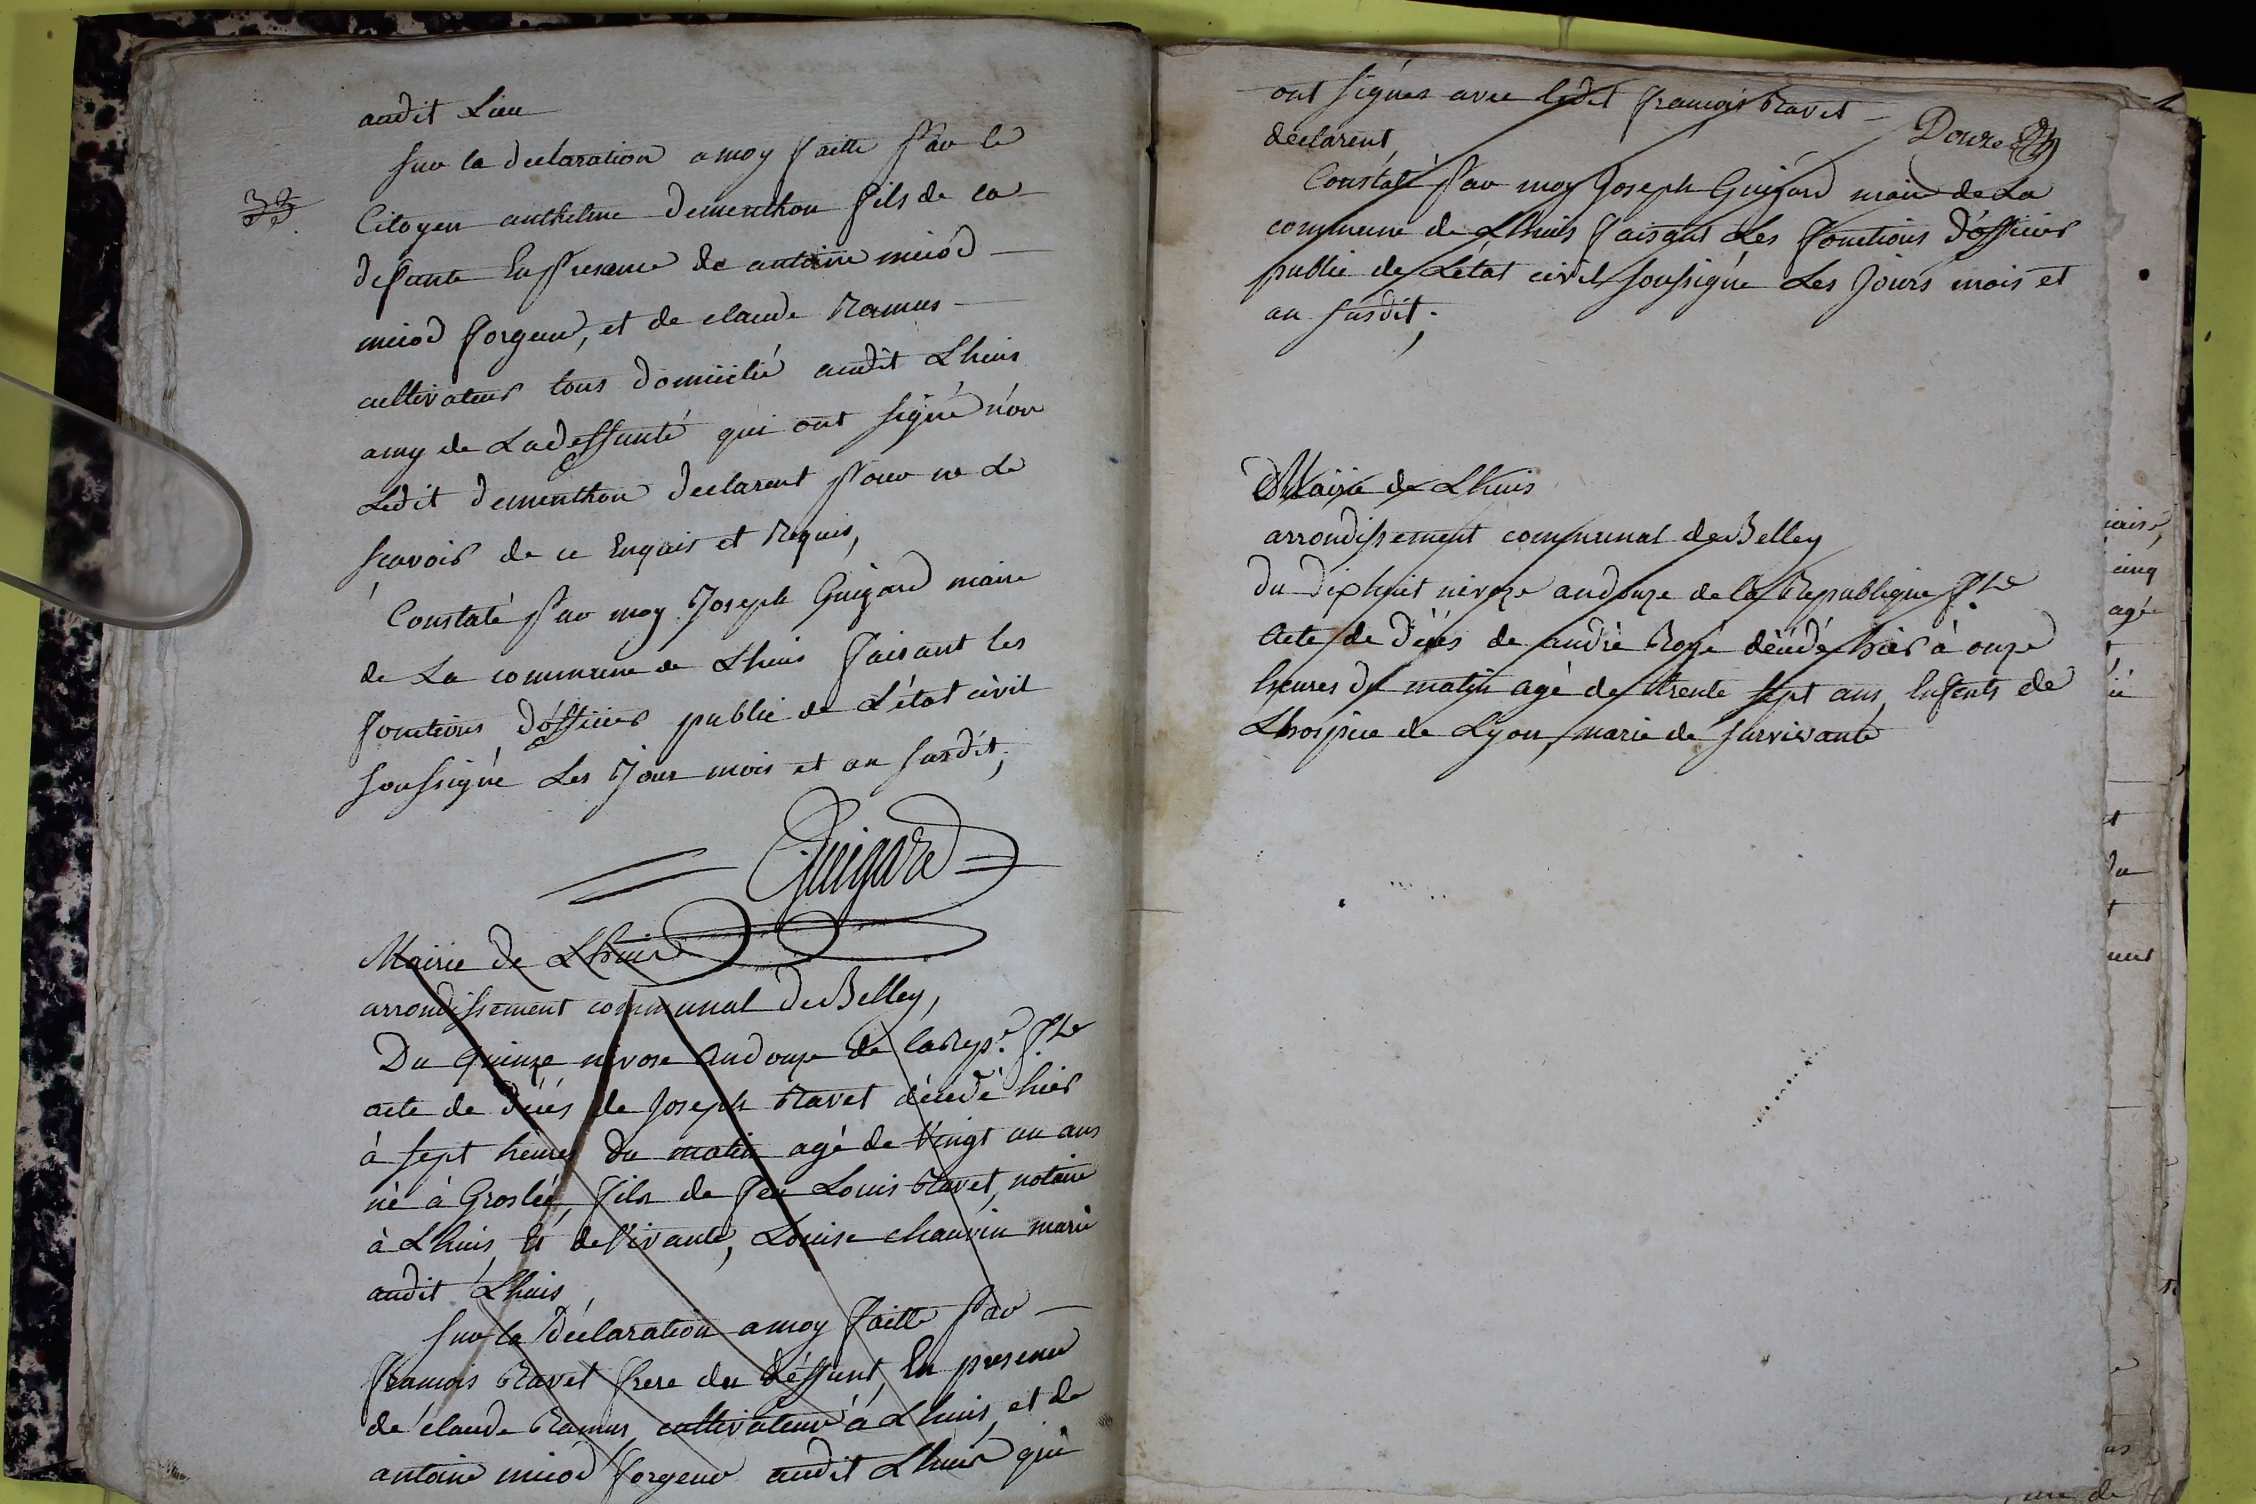 audit Lieu
sur la declaration a moy faitte par le
Citoyen anthelme dementhon fils de la
defunte En presence de antoine miod
miod forgeur, et de claude Ramus
cultivateur tous domicilié audit Lhuis
amy de La deffunté qui ont signé non
Ledit dementhon declarent pour ne le
scavoir de ce Enquis et Requis,
Constaté par moy Joseph Guigard maire
de La commune de Lhuis faisant les
fonctions d'officier public de L'état civil
soussigné Les Jour mois et an susdit;
Guigard
Mairie de Lhuis
arrondissement communal de Belley,
Du quinze nivose an douze de la Rep.e f.se
acte de décés de Joseph Ravet décédé hier
à sept heures du matin agé de Vingt un ans
né à Groslée, fils de feu Louis Ravet, notaire
à Lhuis, Et de Vivante, Louise chauvin marié
audit Lhuis,
sur la déclaration a moy faitte par
francois Ravet frere du déffunt, En presence
de claude Ramus, cultivateur à Lhuis, et de
antoine miod forgeur audit Lhuis qui
ont signés avec ledit francois Ravet
Douze
déclarent,
Constaté par moy Joseph Guigard maire de La
commune de Lhuis faisant Les fonctions d'officier
public de L'état civil soussigné Les Jours mois et
an susdit;
Mairie de Lhuis
arrondissement communal de Belley
du dixhuit nivoze an douze de la Republique f.se
Acte de décés de andré Rozé décédé hier à onze
heures du matin agé de trente sept ans, Enfents de
Lhospice de Lyon, marié de survivante